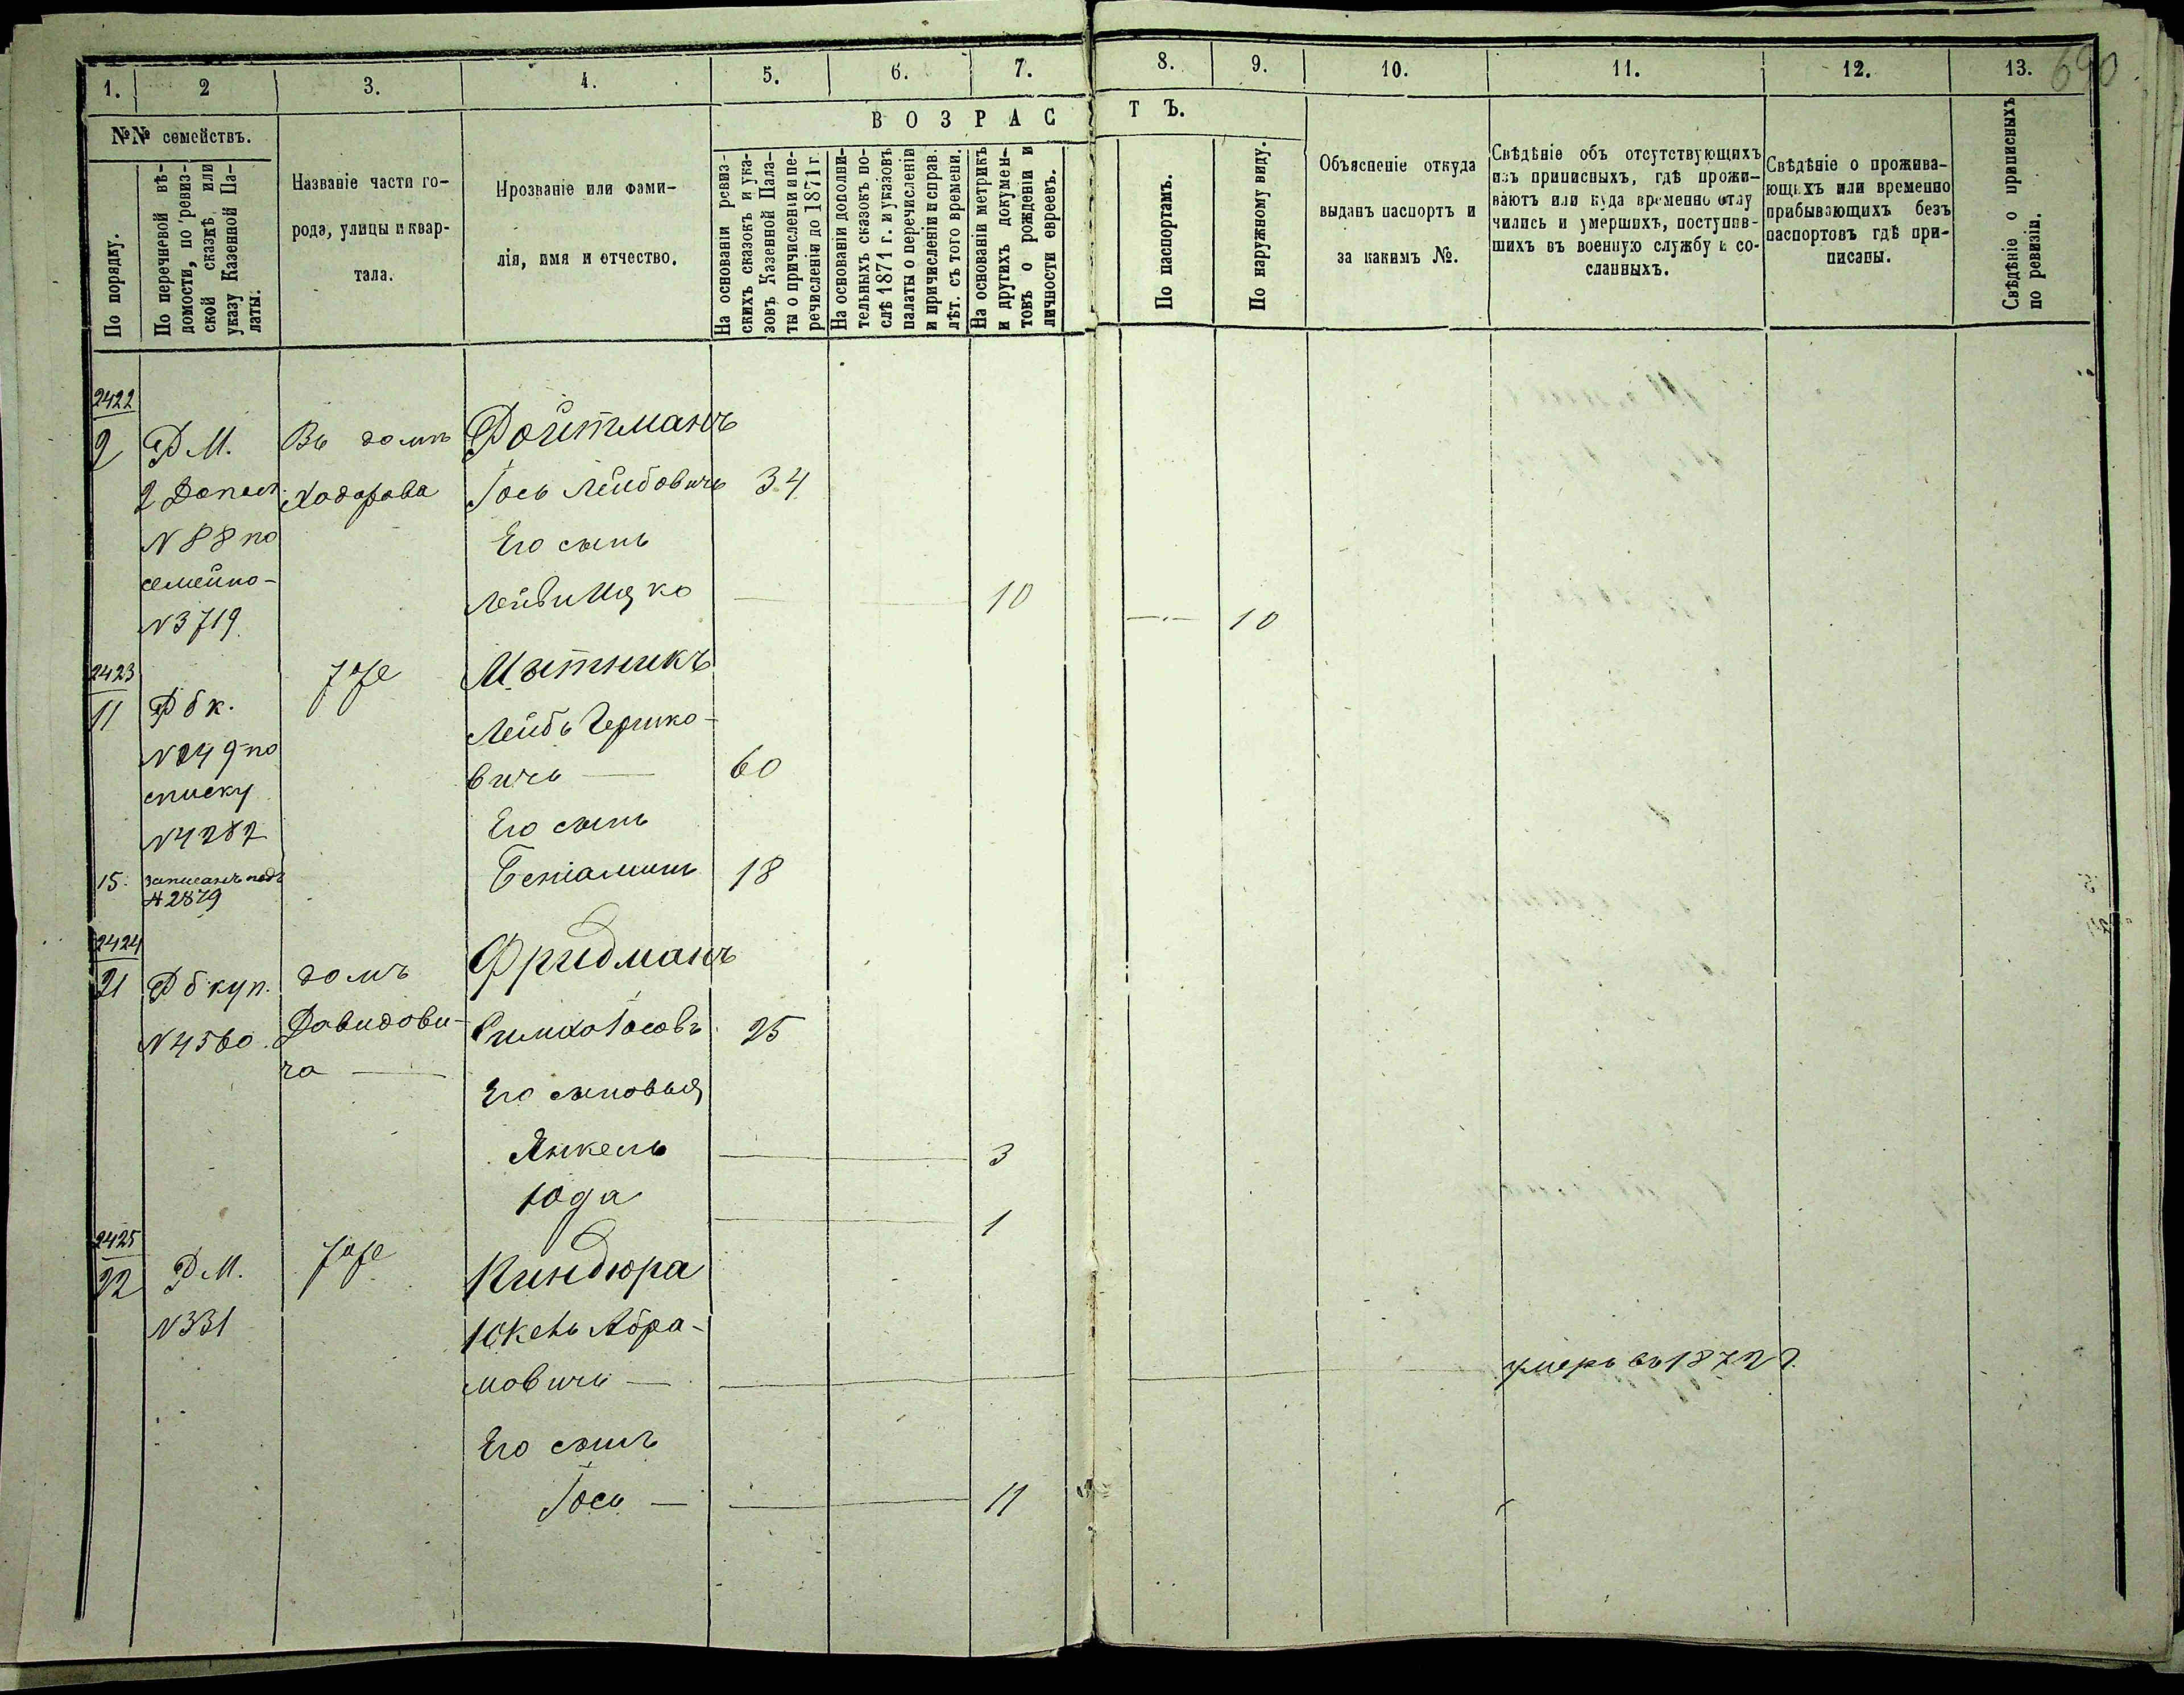 690
1. 2 3. 4. 5. 6. 7. 8. 9. 10. 11. 12. 13.
№№ семействъ.
По порядку.
По перечневой вѣ-
домости, по ревиз-
ской сказкѣ или
указу Казенной Па-
латы.
Названіе части го-
рода, улицы и квар-
тала.
Прозваніе или фами-
лія, имя и отчество.
ВОЗРАСТЪ.
На основаніи ревиз-
скихъ сказокъ и ука-
зовъ Казенной Пала-
ты о причисленіи и пе-
речисленіи до 1871 г.
На основаніи дополни-
тельныхъ сказокъ по-
слѣ 1871 г. и указовъ
палаты о перечисленіи
и причисленіи и справ.
лѣт. съ того времени.
На основаніи метрикъ
и другихъ докумен-
товъ о рожденіи и
личности евреевъ.
По паспортамъ.
По наружному виду.
Объясненіе откуда
выданъ паспортъ и
за какимъ №.
Свѣдѣніе объ отсутствующихъ
изъ приписныхъ, гдѣ прожи-
ваютъ или куда временно отлу
чились и умершихъ, поступив-
шихъ въ военную службу и со-
сланныхъ.
Свѣдѣніе о прожива-
ющихъ или временно
прибывающихъ безъ
паспортовъ гдѣ при-
писаны.
Свѣдѣніе о приписныхъ
по ревизіи.
2422
9 Р М. Въ домѣ Ройтманъ
2 Допол. Ходорова Іось Лейбовичъ 34
N 88 по Его сынъ
семейно- Лейви Ицко — — 10 — 10
N 3719
2423
11 Р б к. тоже Мытникъ
N 249 по Лейбъ Гершко-
списку вичъ — 60
N 4282 Его сынъ
15. записанъ подъ Беніаминъ 18
№ 2879
2424
21 Р б куп. домъ Фридманъ
N 4560. Давидови- Симха Іосовъ 25
ча — Его сыновья
Янкель — 3
Юда — 1
2425
22 Р М. тоже Киндюра
N 331 Юкель Абра-
мовичъ — умеръ въ 1872 г.
Его сынъ
Іось — — 11